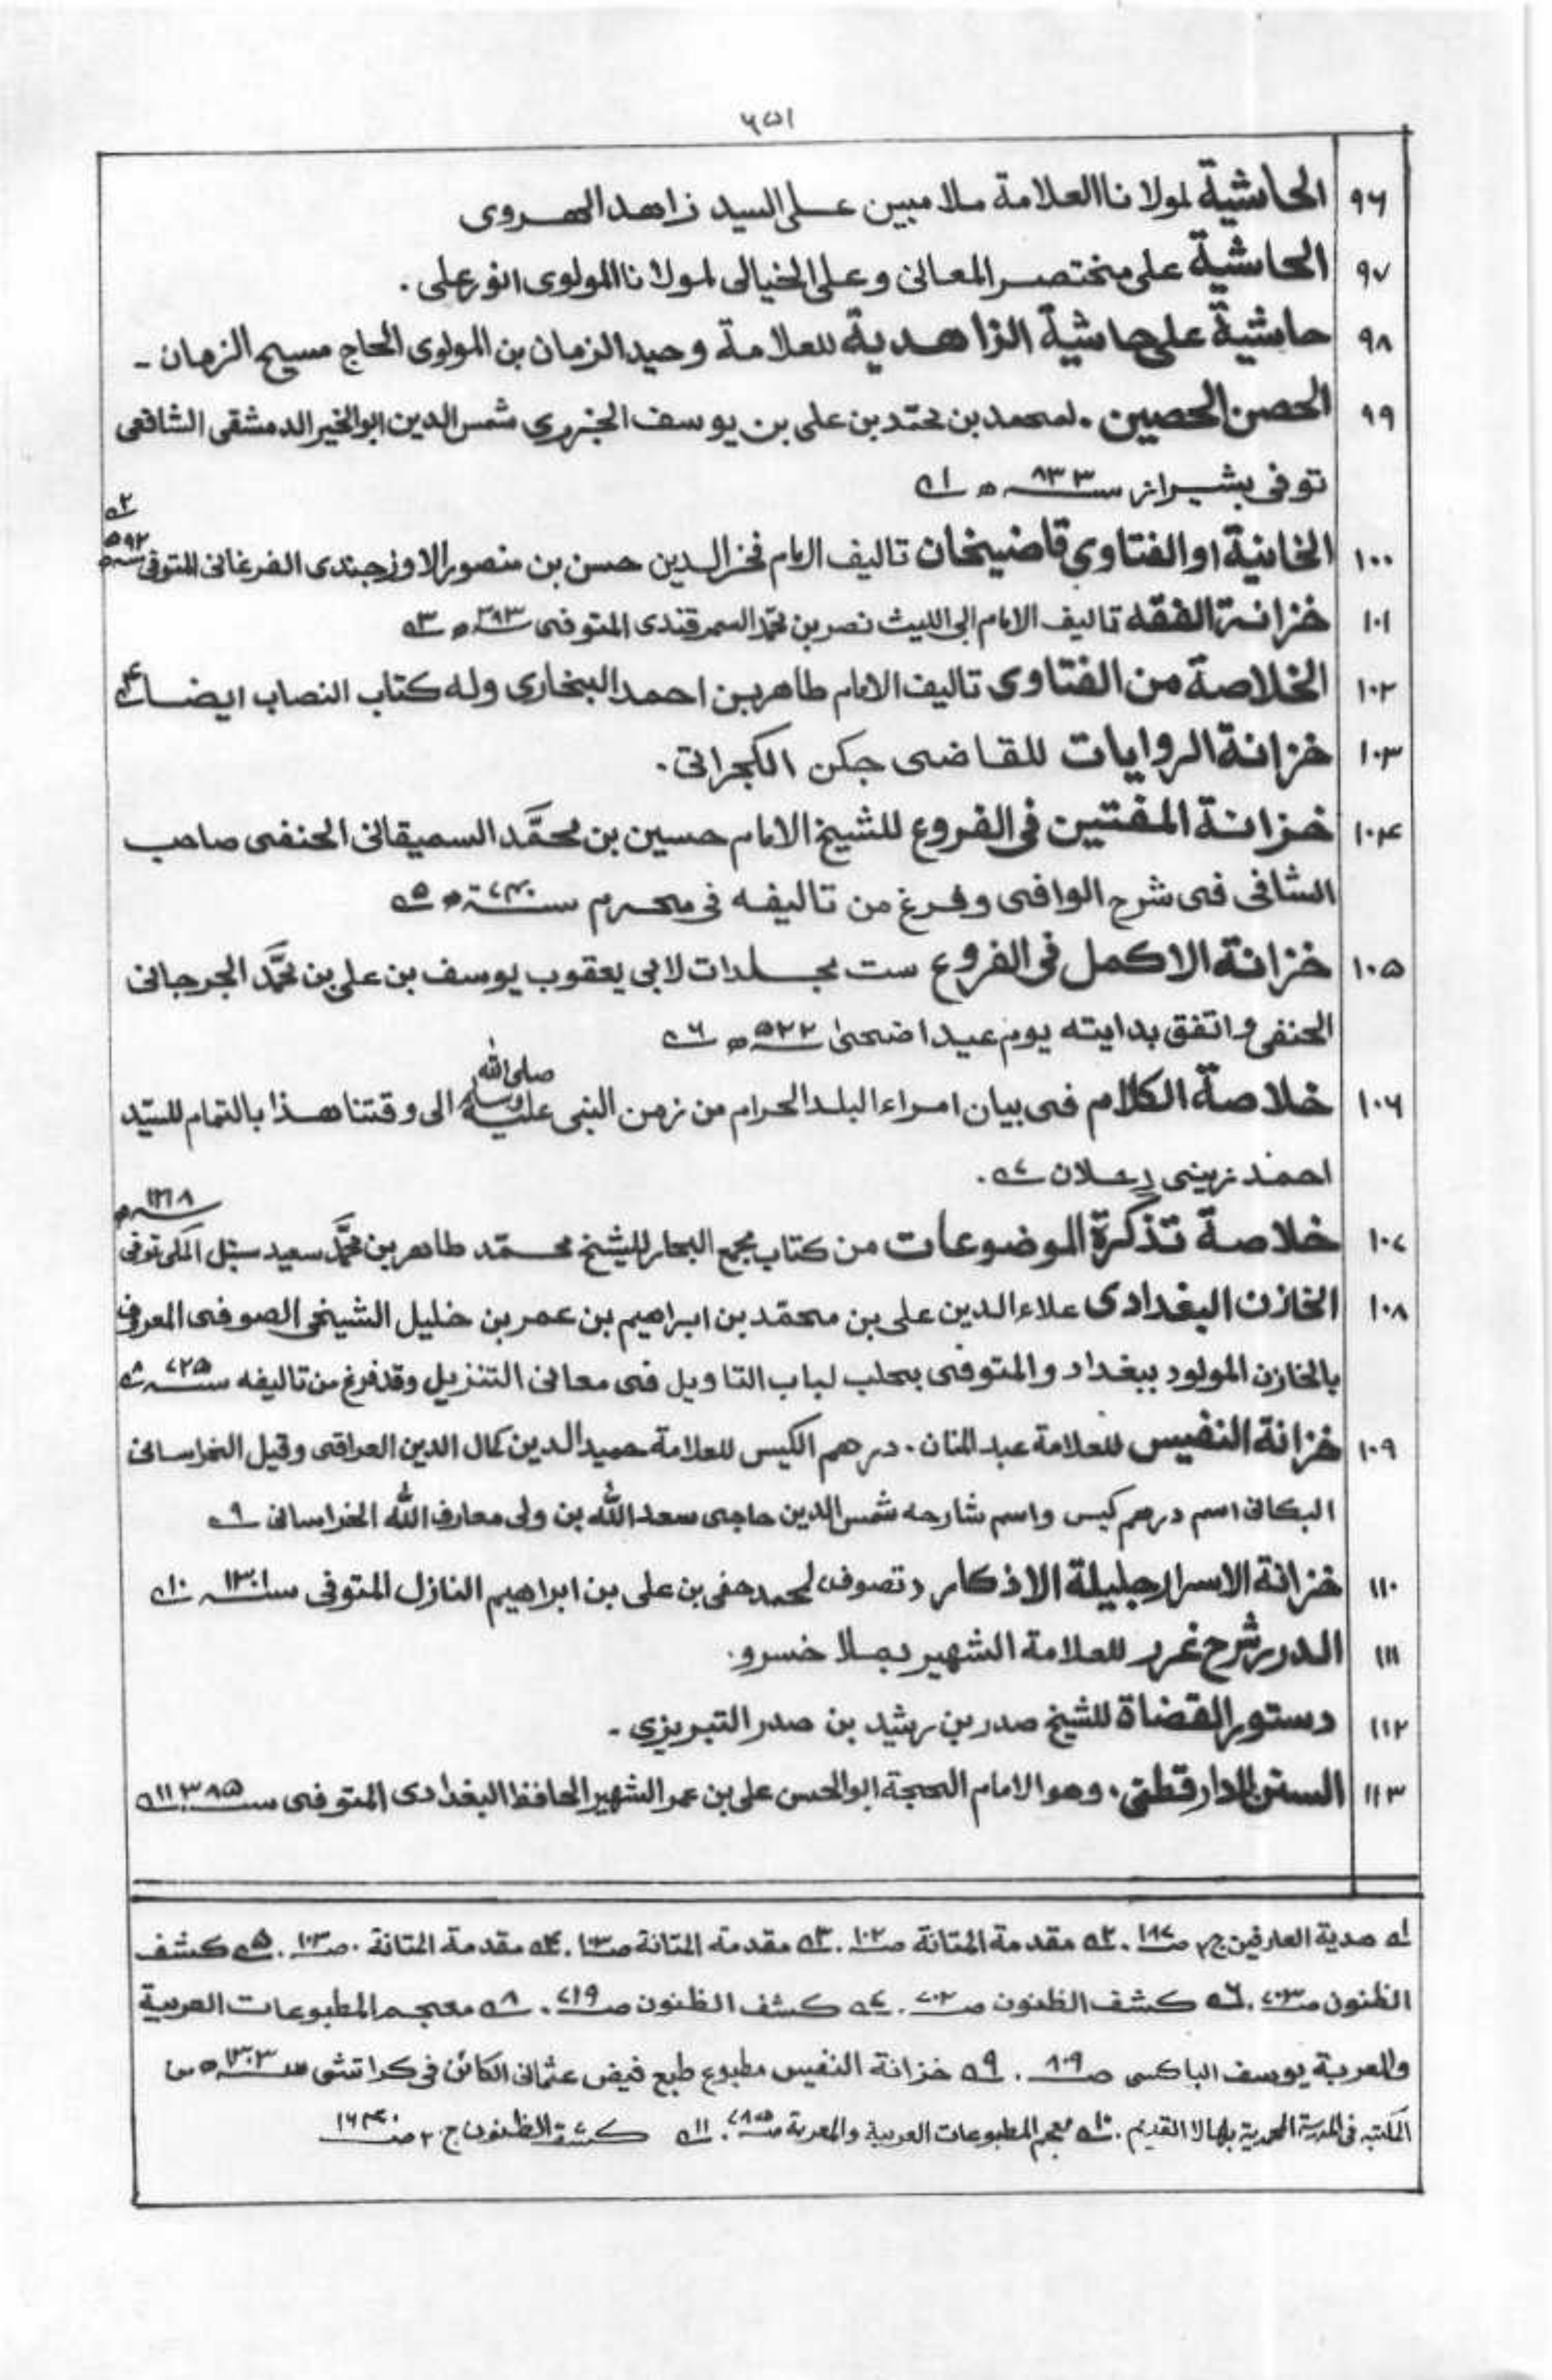 ٦٥١
٩٦ الحاشية لمولانا العلامة ملا مبين على السيد زاهد الهروى
٩٧ الحاشية على مختصر المعانى وعلى الخيالى لمولانا المولوى انور على .
٩٨ حاشية على حاشية الزاهدية للعلامة وحيد الزمان بن المولوى الحاج مسيح الزمان -
٩٩ الحصن الحصين . لمحمد بن محمّد بن على بن يوسف الجزرى شمس الدين ابو الخير الدمشقى الشافعى
توفى بشيراز سنة ٨٣٣ ه ١
١٠٠ الخانية او الفتاوى قاضيخان تاليف الامام فخر الدين حسن بن منصور الاوزجندى الفرغانى المتوفى سنة ٥٩٢ ه ٢
١٠١ خزانة الفقه تاليف الامام ابى الليث نصر بن محمّد السمرقندى المتوفى ه ٣
١٠٢ الخلاصة من الفتاوى تاليف الامام طاهر بن احمد البخارى وله كتاب النصاب ايضا ٤
١٠٣ خزانة الروايات للقاضى جكن الكجراتى .
١٠٤ خزانة المفتين فى الفروع للشيخ الامام حسين بن محمَّد السميقانى الحنفى صاحب
الشافى فى شرح الوافى وفرغ من تاليفه فى محرم سنة ٧٤٠ ه ٥
١٠٥ خزانة الاكمل فى الفروع ست مجلدات لابى يعقوب يوسف بن على بن محمَّد الجرجانى
الحنفى واتفق بدايته يوم عيد اضحىٰ ٥٢٢ ه ٦
١٠٦ خلاصة الكلام فى بيان امراء البلد الحرام من زمن النبى صلى الله عليه وسلم الى وقتنا هذا بالتمام للسيّد
احمد زينى دحلان ٧ .
١٠٧ خلاصة تذكرة الموضوعات من كتاب مجمع البحار للشيخ محمّد طاهر بن محمَّد سعيد سنبل المكى توفى ١٢١٨ ه
١٠٨ الخازن البغدادى علاء الدين على بن محمّد بن ابراهيم بن عمر بن خليل الشيخى الصوفى المعروف
بالخازن المولود ببغداد والمتوفى بحلب لباب التاويل فى معانى التنزيل وقد فرغ من تاليفه سنة ٧٢٥ ٨
١٠٩ خزانة النفيس للعلامة عبد المنان . درهم الكيس للعلامة حميد الدين كمال الدين العراقى وقيل الخراسانى
البكانى اسم درهم كيس واسم شارحه شمس الدين حاجى سعد الله بن ولى معارف الله الخراسانى ٩
١١٠ خزانة الاسرار جليلة الاذكار (تصوف) لمحمد حفى بن على بن ابراهيم النازل المتوفى سنة ١٣٠١ ١٠
١١١ الدرر شرح غرر للعلامة الشهير بملا خسرو.
١١٢ دستور القضاة للشيخ صدر بن رشيد بن صدر التبريزى -
١١٣ السنن الدارقطنى . وهو الامام الحجة ابو الحسن على بن عمر الشهير الحافظ البغدادى المتوفى سنة ٣٨٥ ١١
١ هدية العارفين ج ٢ ص ١٨٧ . ٢ مقدمة المتانة ص ١٠٢ . ٣ مقدمة المتانة ص ١٠٣ . ٤ مقدمة المتانة . ص ١٠٣ . ٥ كشف
الظنون ص ٧٠٣ . ٦ كشف الظنون ص ٧٠٢ . ٧ كشف الظنون ص ٧١٩ . ٨ معجم المطبوعات العربية
والعربية يوسف الباكسى ص ٨٠٩ . ٩ خزانة النفيس مطبوع طبع فيض عثمانى الكائن فى كراتشى سنة ١٣٠٣ ه من
المكتبه فى المدرسة المحمدية بهالا القديم . ١٠ معجم المطبوعات العربية والمعربة ص ٧٨٥ . ١١ كشف الظنون ج ٢ ص ١٦٤٠